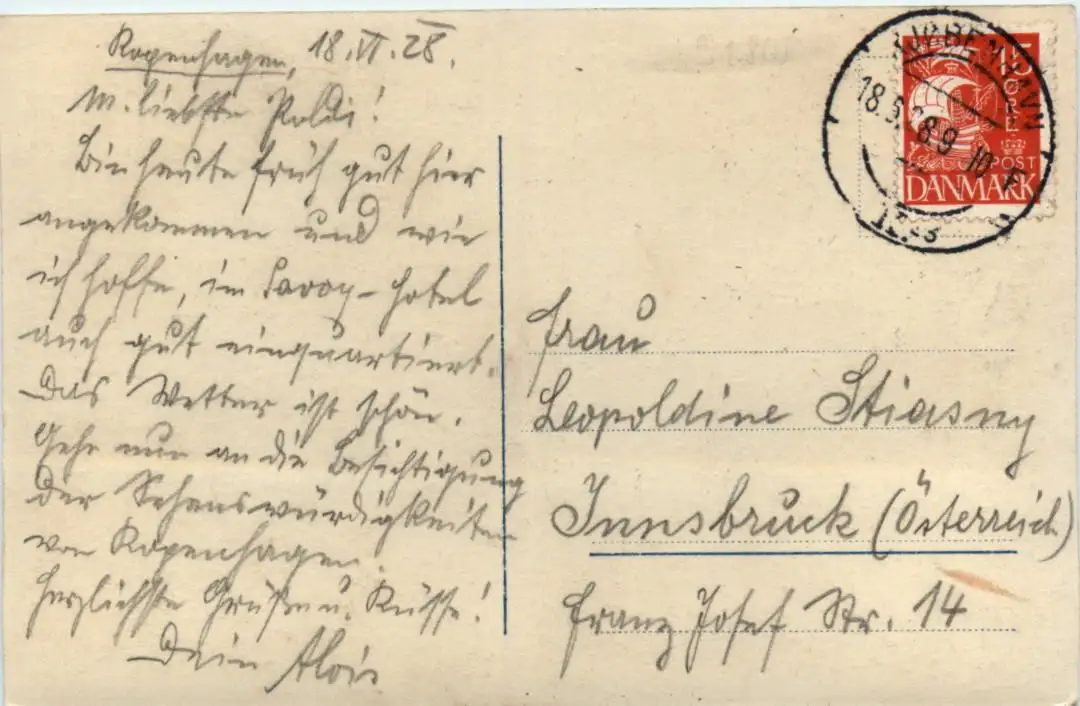 Kopenhagen, 18.VI.28.
M. liebste Poldi!
Bin heute früh gut hier
angekommen und wie
ich hoffe, im Savoy-Hotel
auch gut einquartiert.
Das Wetter ist schön.
Gehe nun an die Besichtigung
der Sehenswürdigkeiten
von Kopenhagen.
Herzlichste Grüße u. Küsse!
Dein Alois
KJØBENHAVN
18.6.28.9-10 F
15
ØRE
POST
DANMARK
Frau
Leopoldine Stiasny
Innsbruck (Österreich)
Franz Josef Str. 14